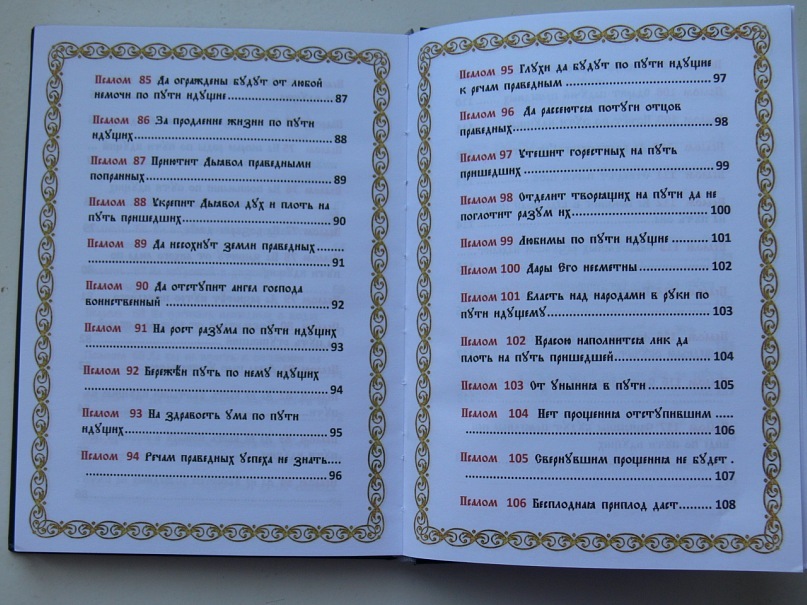 Псалом 85 Да ограждены будут от любой
немочи по пути идущие.....................87
Псалом 86 За продление жизни по пути
идущих........................................88
Псалом 87 Приютит Дьявол праведными
попранных....................................89
Псалом 88 Укрепит Дьявол дух и плоть на
путь пришедших..............................90
Псалом 89 Да иссохнут земли праведных.......
...................................................91
Псалом 90 Да отступит ангел господа
воинственный .................................92
Псалом 91 На рост разума по пути идущих
...................................................93
Псалом 92 Бережём путь по нему идущих
...................................................94
Псалом 93 На здравость ума по пути
идущих..........................................95
Псалом 94 Речам праведных успеха не знать....
...................................................96
Псалом 95 Глухи да будут по пути идущие
к речам праведным.............................97
Псалом 96 Да рассеются потуги отцов
праведных.......................................98
Псалом 97 Утешит горестных на путь
пришедших ......................................99
Псалом 98 Отделит творящих на пути да не
поглотит разум их............................100
Псалом 99 Любимы по пути идущие ..........101
Псалом 100 Дары Его несметны ...............102
Псалом 101 Власть над народами в руки по
пути идущему..................................103
Псалом 102 Красою наполнится лик да
плоть на путь пришедшей.....................104
Псалом 103 От Уныния в пути ................105
Псалом 104 Нет прощения отступившим .....
...................................................106
Псалом 105 Свернувшим прощения не будет .
...................................................107
Псалом 106 Бесплодная приплод даст.........108